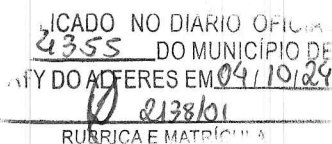 LICADO NO DIÁRIO OFICIA
4355 DO MUNICÍPIO DE
TY DO ALFERES EM 04/10/24
2138/01
RUBRICA E MATRÍCULA